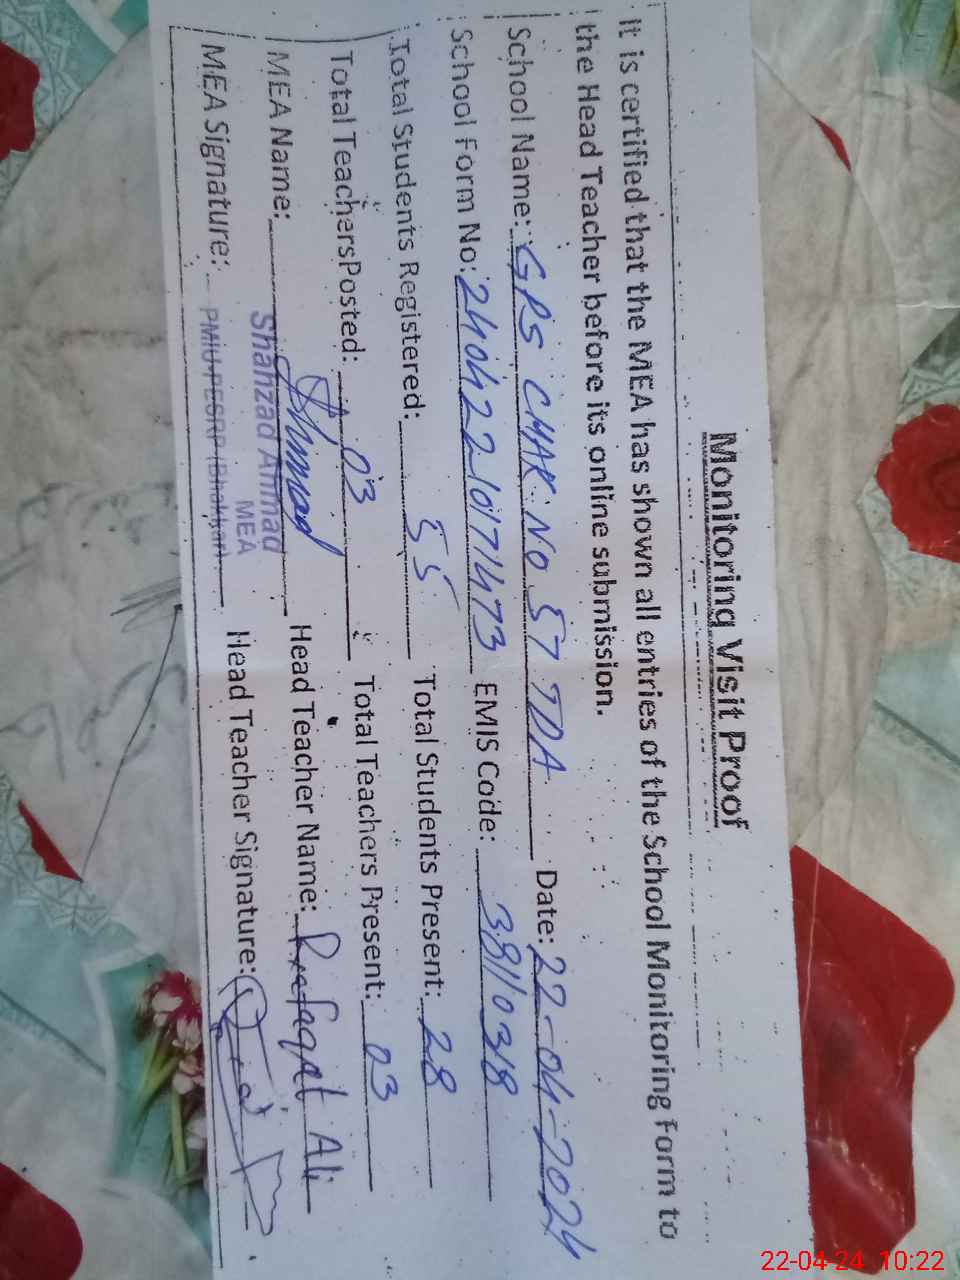 Monitoring Visit Proof
It is certified that the MEA has shown all entries of the School Monitoring Form to
the Head Teacher before its online submission.
School Name: GPS CHAK NO 57 TDA Date: 22-04-2024
School Form No: 240422-10171473 EMIS Code: 38110318
Total Students Registered: 55 Total Students Present: 28
Total Teachers Posted: 03 Total Teachers Present: 03
MEA Name: Ahmad Head Teacher Name: Rafaqat Ali
Shahzad Ahmad
MEA
MEA Signature: PMIU-PESRP (Bhakkar) Head Teacher Signature:
22-04-24 10:22